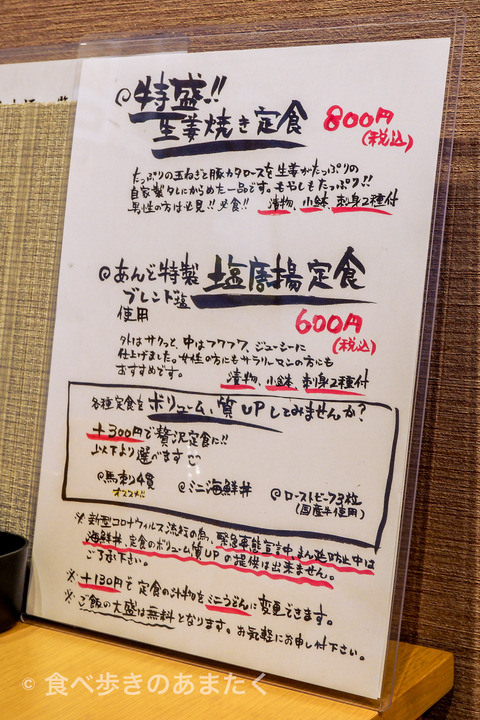 @特盛!!
生姜焼き定食 800円
(税込)
たっぷりの玉ねぎと豚カタロースを生姜がたっぷりの
自家製タレにからめた一品です。もやしもたっぷり!!
男性の方は必見!!必食!! 漬物、小鉢、刺身2種付
@あんど特製 塩唐揚定食
ブレンド塩
使用
600円
(税込)
外はサクッと、中はフワフワ、ジューシーに
仕上げました。女性の方にもサラリーマンの方にも
おすすめです。
漬物、小鉢、刺身2種付
各種定食をボリューム、質UPしてみませんか?
+300円で贅沢定食に!!
以下より選べます
@馬刺4貫
オススメ!!
@ミニ海鮮丼
@ローストビーフ3枚
(国産牛使用)
※新型コロナウィルス流行の為、緊急事態宣言中、まん延防止中は
海鮮丼、定食のボリューム質UPの提供は出来ません。
ご了承下さい。
※+130円で定食の汁物をミニうどんに変更できます。
※ご飯の大盛は無料となります。お気軽にお申し付下さい。
© 食べ歩きのあまたく